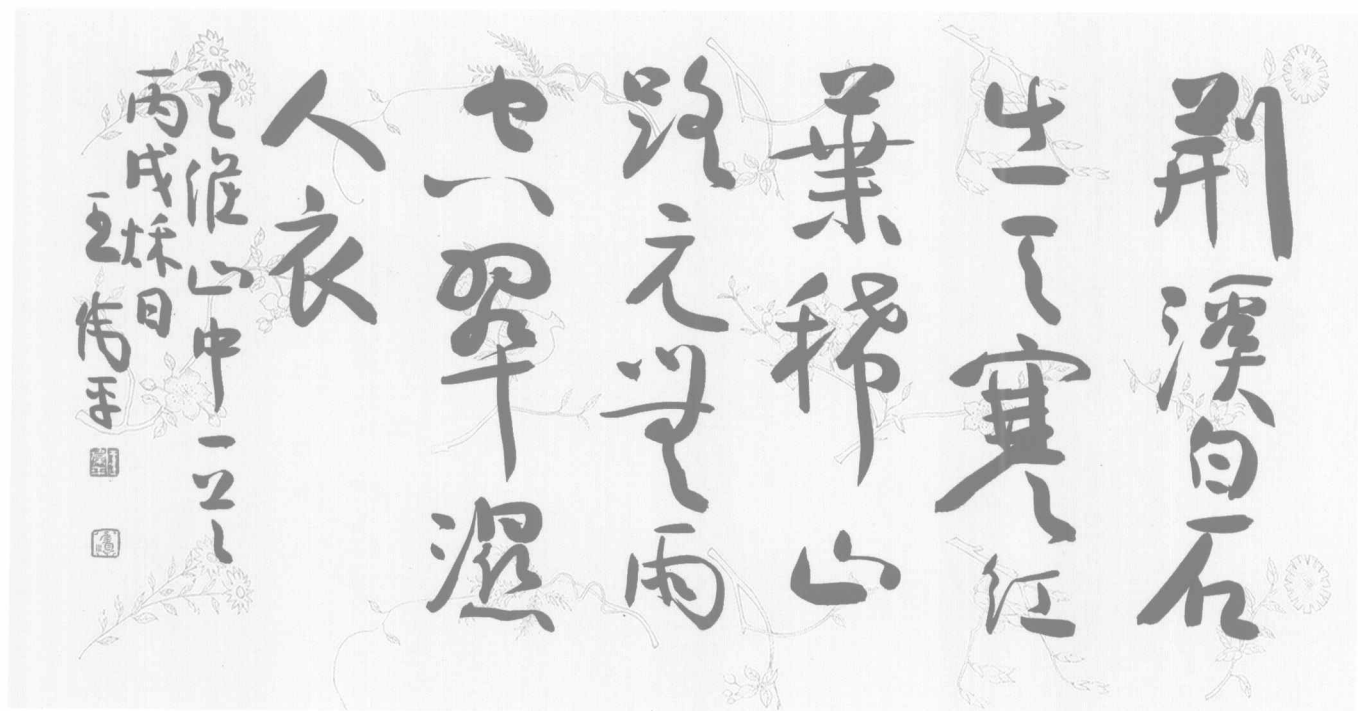 荊溪白石
出天寒紅
葉稀山
路元無雨
空翠濕
人衣
王維山中一首
丙戌秌日
王偉平